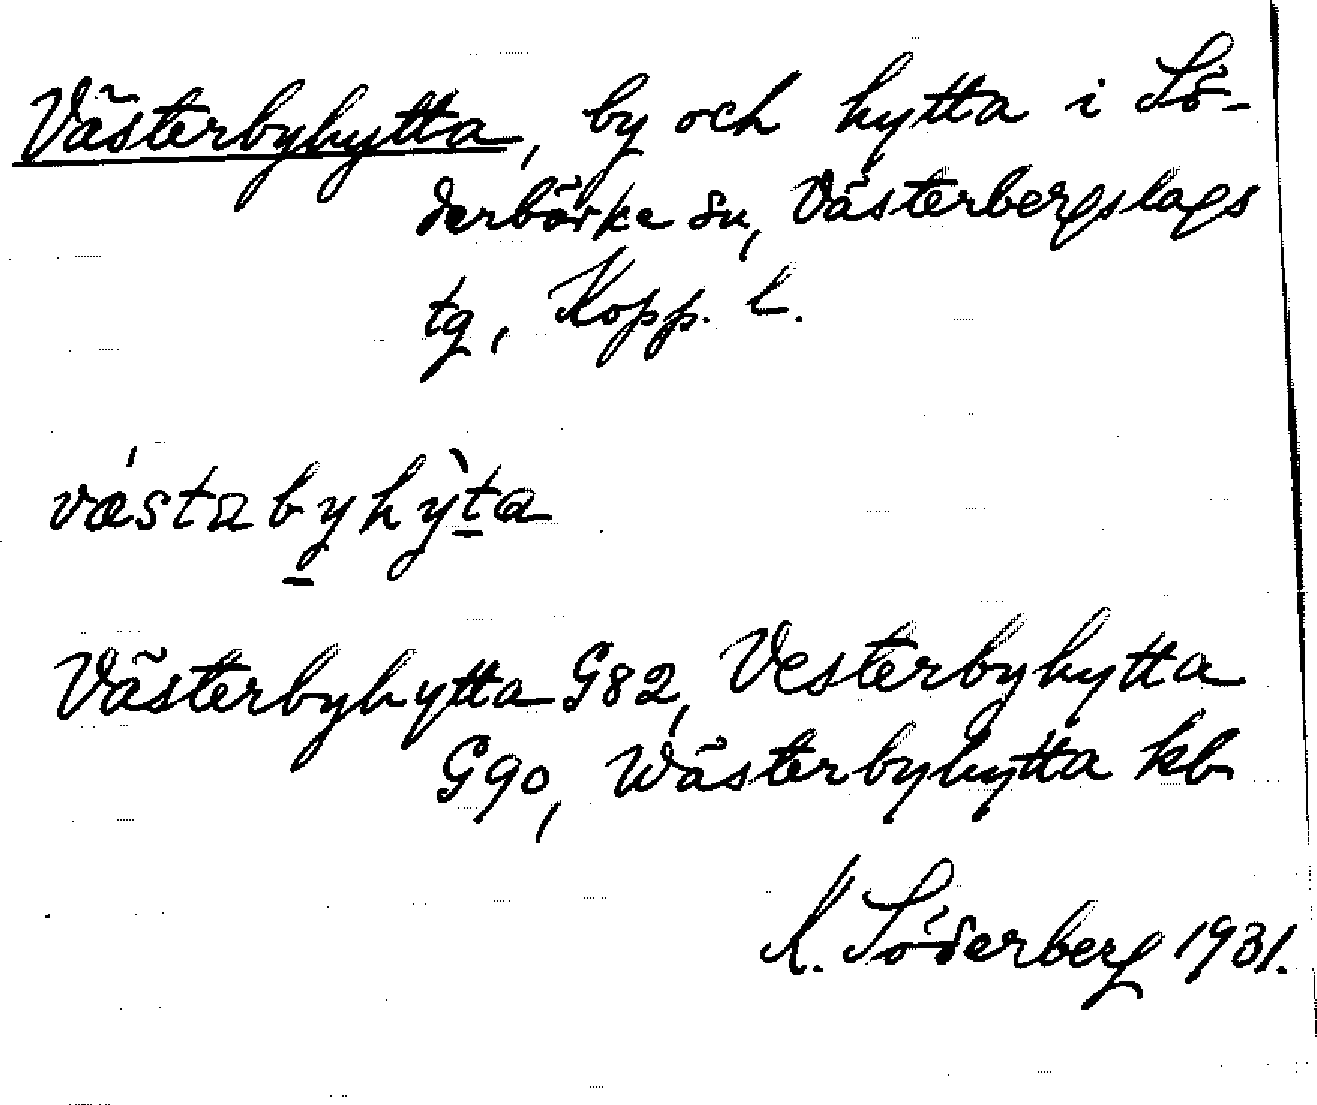 Västerbyhytta, by och hytta i Sö-
derbärke sn, Västerbergslags
tg, Kopp. l.
vǽstabyhỳta
Västerbyhytta G82, Vesterbyhytta
G90, Wästerbyhytta kb
K. Söderberg 1931.